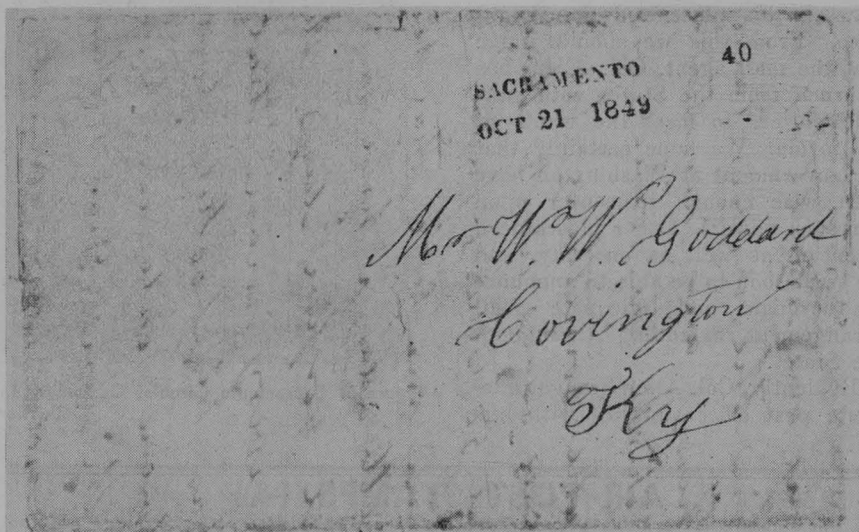 40
SACRAMENTO
OCT 21 1849
Mr W. W. Goddard
Covington
Ky